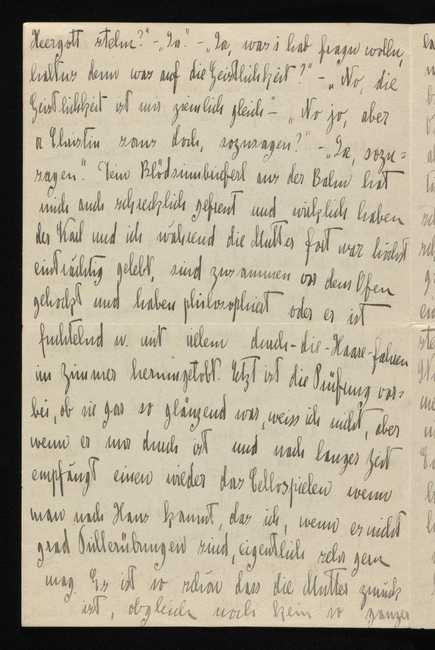 Herrgott stehn?" - "Ja." - "Ja, was i hab fragn wolln,
haltns denn was auf die Geistlichkeit?" - "No, die
Geistlichkeit ist mir ziemlich gleich" - "No jo, aber
a Christin sans doch, sozusagen?" - "Ja, sozu=
sagen." Dein Blödsinnbrieferl aus der Bahn hat
mich auch schrecklich gefreut und wirklich haben
der Karl und ich während die Mutter fort war höchst
einträchtig gelebt, sind zusammen vor dem Ofen
gehockt und haben philosophiert oder er ist
fuchtelnd u. mit vielem durch-die-Haare-fahren
im Zimmer herumgetobt. Jetzt ist die Prüfung vor=
bei, ob sie gar so glänzend war, weiss ich nicht, aber
wenn er nur durch ist und nach langer Zeit
empfängt einen wieder das Cellospielen wenn
man nach Haus kommt, das ich, wenn es nicht
grad Trillerübungen sind, eigentlich sehr gern
mag. Es ist so schön dass die Mutter zurück
ist, obgleich noch kein so ganzes